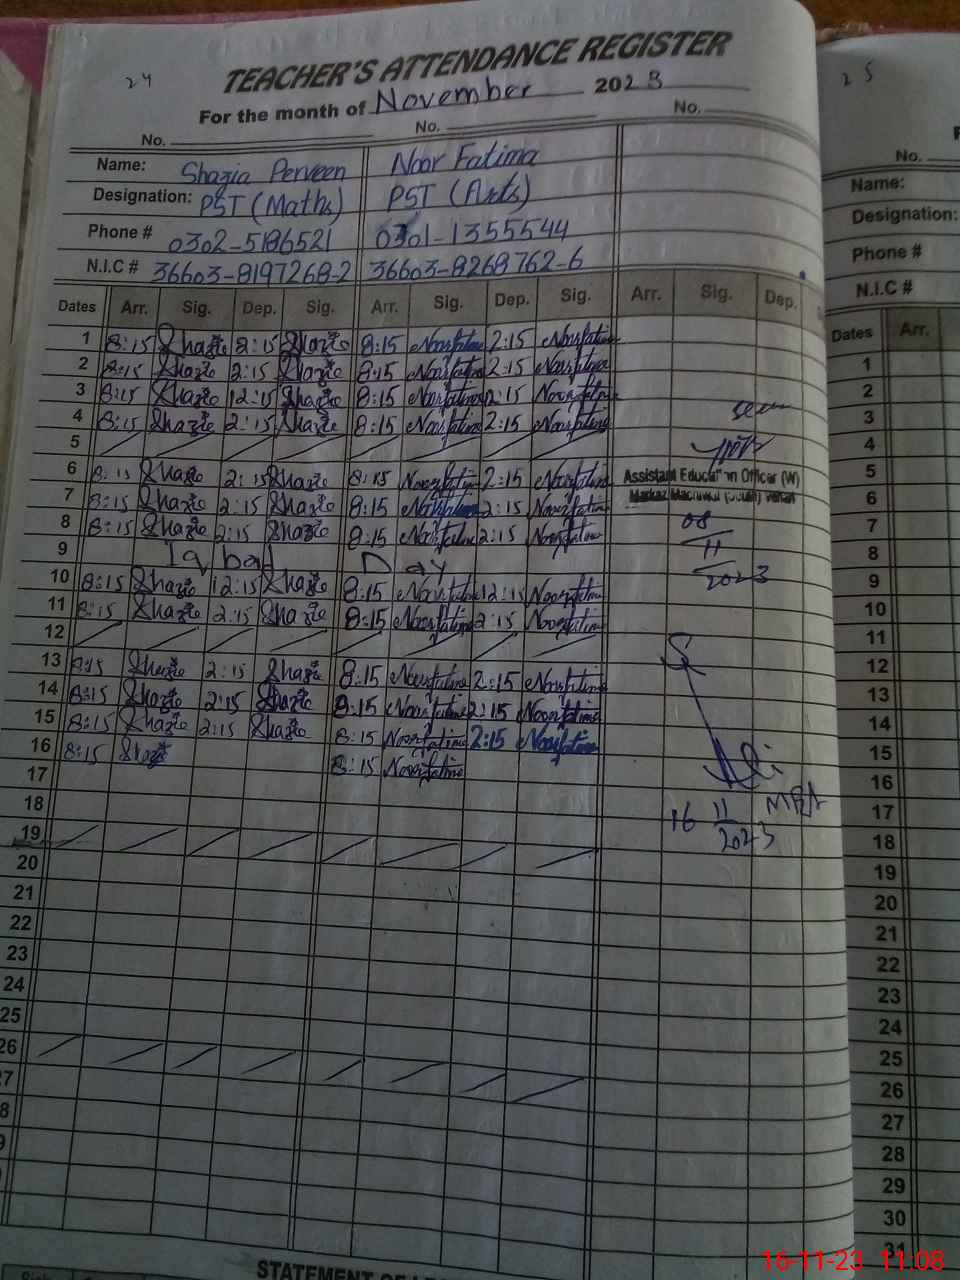 24
TEACHER'S ATTENDANCE REGISTER
For the month of November 2023
No. No. No.
Name: Shazia Perveen Noor Fatima
Designation: PST (Maths) PST (Arts)
Phone # 0302-5186521 0301-1355544
N.I.C # 36603-8197268-2 36603-8268762-6
Dates Arr. Sig. Dep. Sig. Arr. Sig. Dep. Sig. Arr. Sig. Dep.
1 8:15 Shazia 2:15 Shazia 8:15 Noorfatima 2:15 Noorfatima
2 8:15 Shazia 2:15 Shazia 8:15 Noorfatima 2:15 Noorfatima
3 8:15 Shazia 12:15 Shazia 8:15 Noorfatima 12:15 Noorfatima
4 8:15 Shazia 2:15 Shazia 8:15 Noorfatima 2:15 Noorfatima
5
6 8:15 Shazia 2:15 Shazia 8:15 Noorfatima 2:15 Noorfatima
7 8:15 Shazia 2:15 Shazia 8:15 Noorfatima 2:15 Noorfatima
8 8:15 Shazia 2:15 Shazia 8:15 Noorfatima 2:15 Noorfatima
9 Iqbal Day
10 8:15 Shazia 12:15 Shazia 8:15 Noorfatima 12:15 Noorfatima
11 8:15 Shazia 2:15 Shazia 8:15 Noorfatima 2:15 Noorfatima
12
13 8:15 Shazia 2:15 Shazia 8:15 Noorfatima 2:15 Noorfatima
14 8:15 Shazia 2:15 Shazia 8:15 Noorfatima 2:15 Noorfatima
15 8:15 Shazia 2:15 Shazia 8:15 Noorfatima 2:15 Noorfatima
16 8:15 Shazia 8:15 Noorfatima
17
18
19
20
21
22
23
24
25
26
7
8
9
Seen
Assistant Education Officer (W)
Markaz
08
11
2023
MEA
16 11
2023
STATEMENT OF
25
No.
Name:
Designation:
Phone #
N.I.C #
Dates Arr.
1
2
3
4
5
6
7
8
9
10
11
12
13
14
15
16
17
18
19
20
21
22
23
24
25
26
27
28
29
30
31
16-11-23 11:08